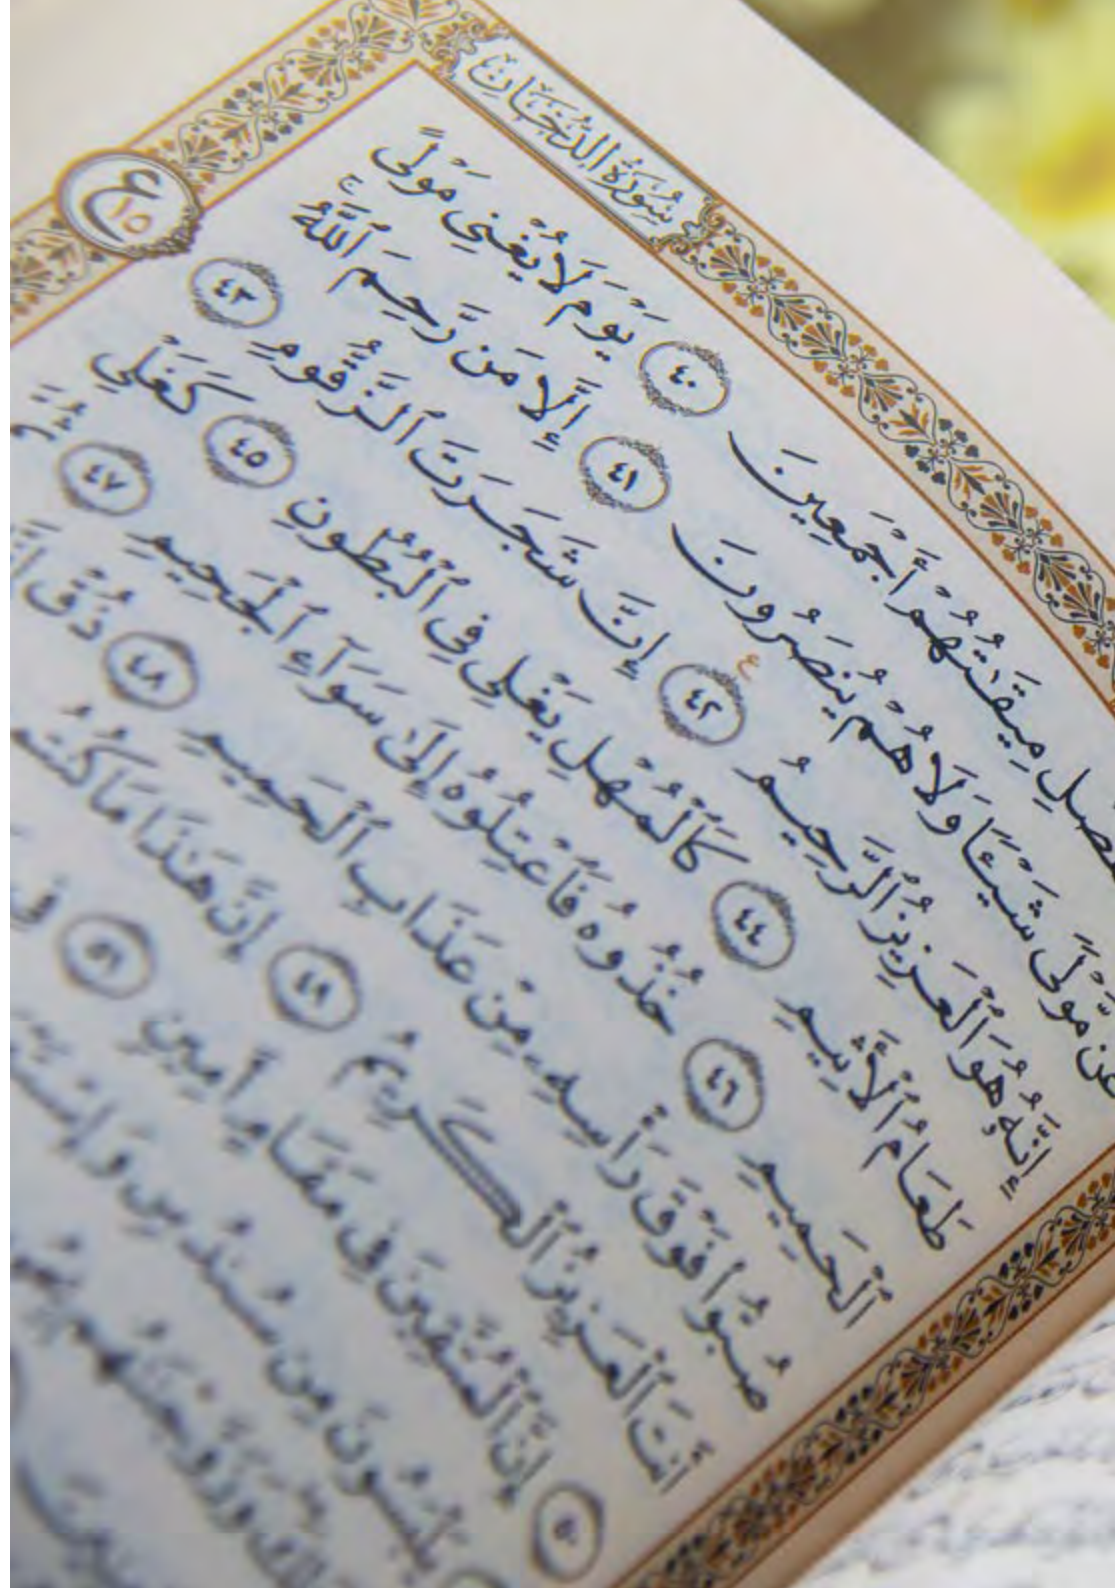 سُورَةُ الدُّخَانِ
ع
١٥
مِيقَٰتُهُمْ أَجْمَعِينَ ٤٠ يَوْمَ لَا يُغْنِى مَوْلًى
عَن مَّوْلًى شَيْـًٔا وَلَا هُمْ يُنصَرُونَ ٤١ إِلَّا مَن رَّحِمَ ٱللَّهُ ۚ
إِنَّهُۥ هُوَ ٱلْعَزِيزُ ٱلرَّحِيمُ ٤٢ ع إِنَّ شَجَرَتَ ٱلزَّقُّومِ ٤٣
طَعَامُ ٱلْأَثِيمِ ٤٤ كَٱلْمُهْلِ يَغْلِى فِى ٱلْبُطُونِ ٤٥ كَغَلْىِ
ٱلْحَمِيمِ ٤٦ خُذُوهُ فَٱعْتِلُوهُ إِلَىٰ سَوَآءِ ٱلْجَحِيمِ ٤٧ ثُمَّ
صُبُّوا۟ فَوْقَ رَأْسِهِۦ مِنْ عَذَابِ ٱلْحَمِيمِ ٤٨ ذُقْ
أَنتَ ٱلْعَزِيزُ ٱلْكَرِيمُ ٤٩ إِنَّ هَٰذَا مَا كُنتُم
٥٠ إِنَّ ٱلْمُتَّقِينَ فِى مَقَامٍ أَمِينٍ ٥١ فِى
يَلْبَسُونَ مِن سُندُسٍ
وَزَوَّجْنَٰهُم